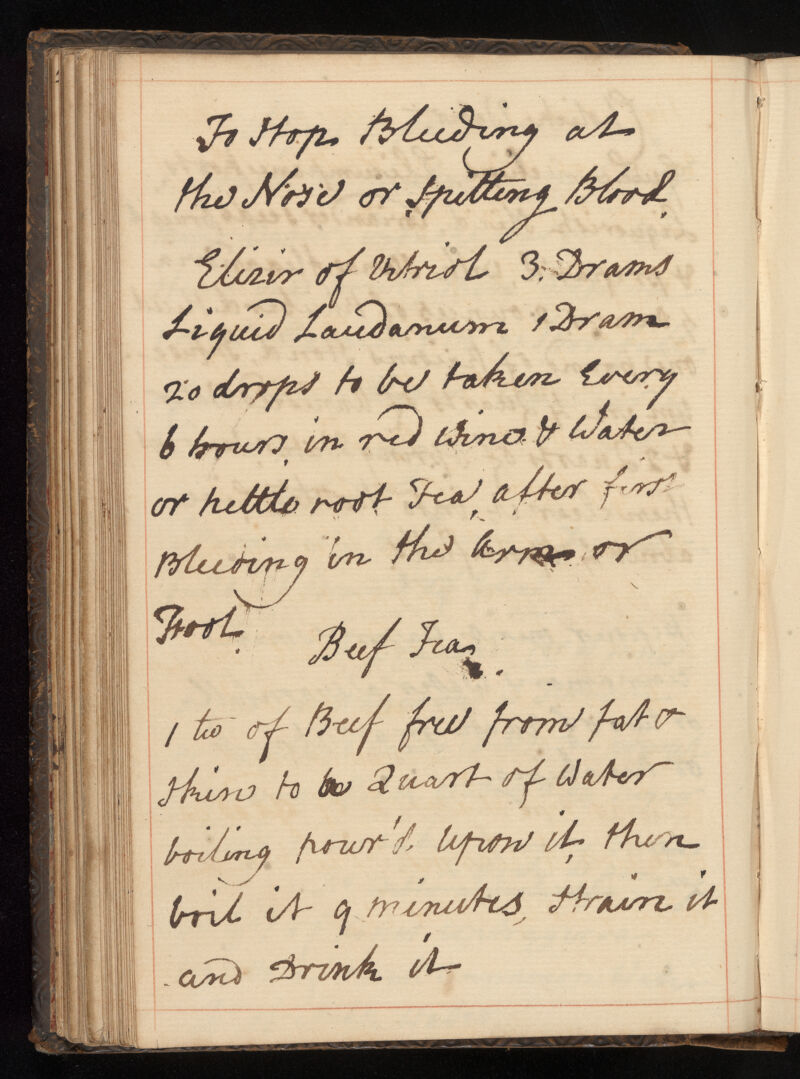 To Stop Bleeding at
the Nose or Spitting Blood.
Elixir of Vitriol 3. Drams
Liquid Laudanum 1 Dram
20 drops to be taken Every
6 hours, in red wine & Water
or nettle root Tea, after first
Bleeding in the Arm or
Foot.
Beef Tea.
1 lb of Beef free from fat &
skin to a Quart of Water
boiling pour'd. upon it, then
boil it 9 minutes, strain it
and Drink it